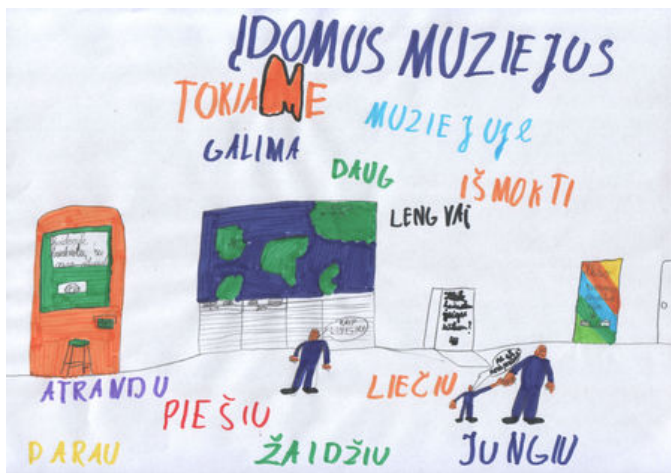 ĮDOMUS MUZIEJUS
TOKIAME
MUZIEJUJe
GALIMA
DAUG
IŠMOKTI
LENGVAi
ATRANDU
PIEŠIU
LIEČIU
DARAU
ŽAIDŽIU
JUNGIU